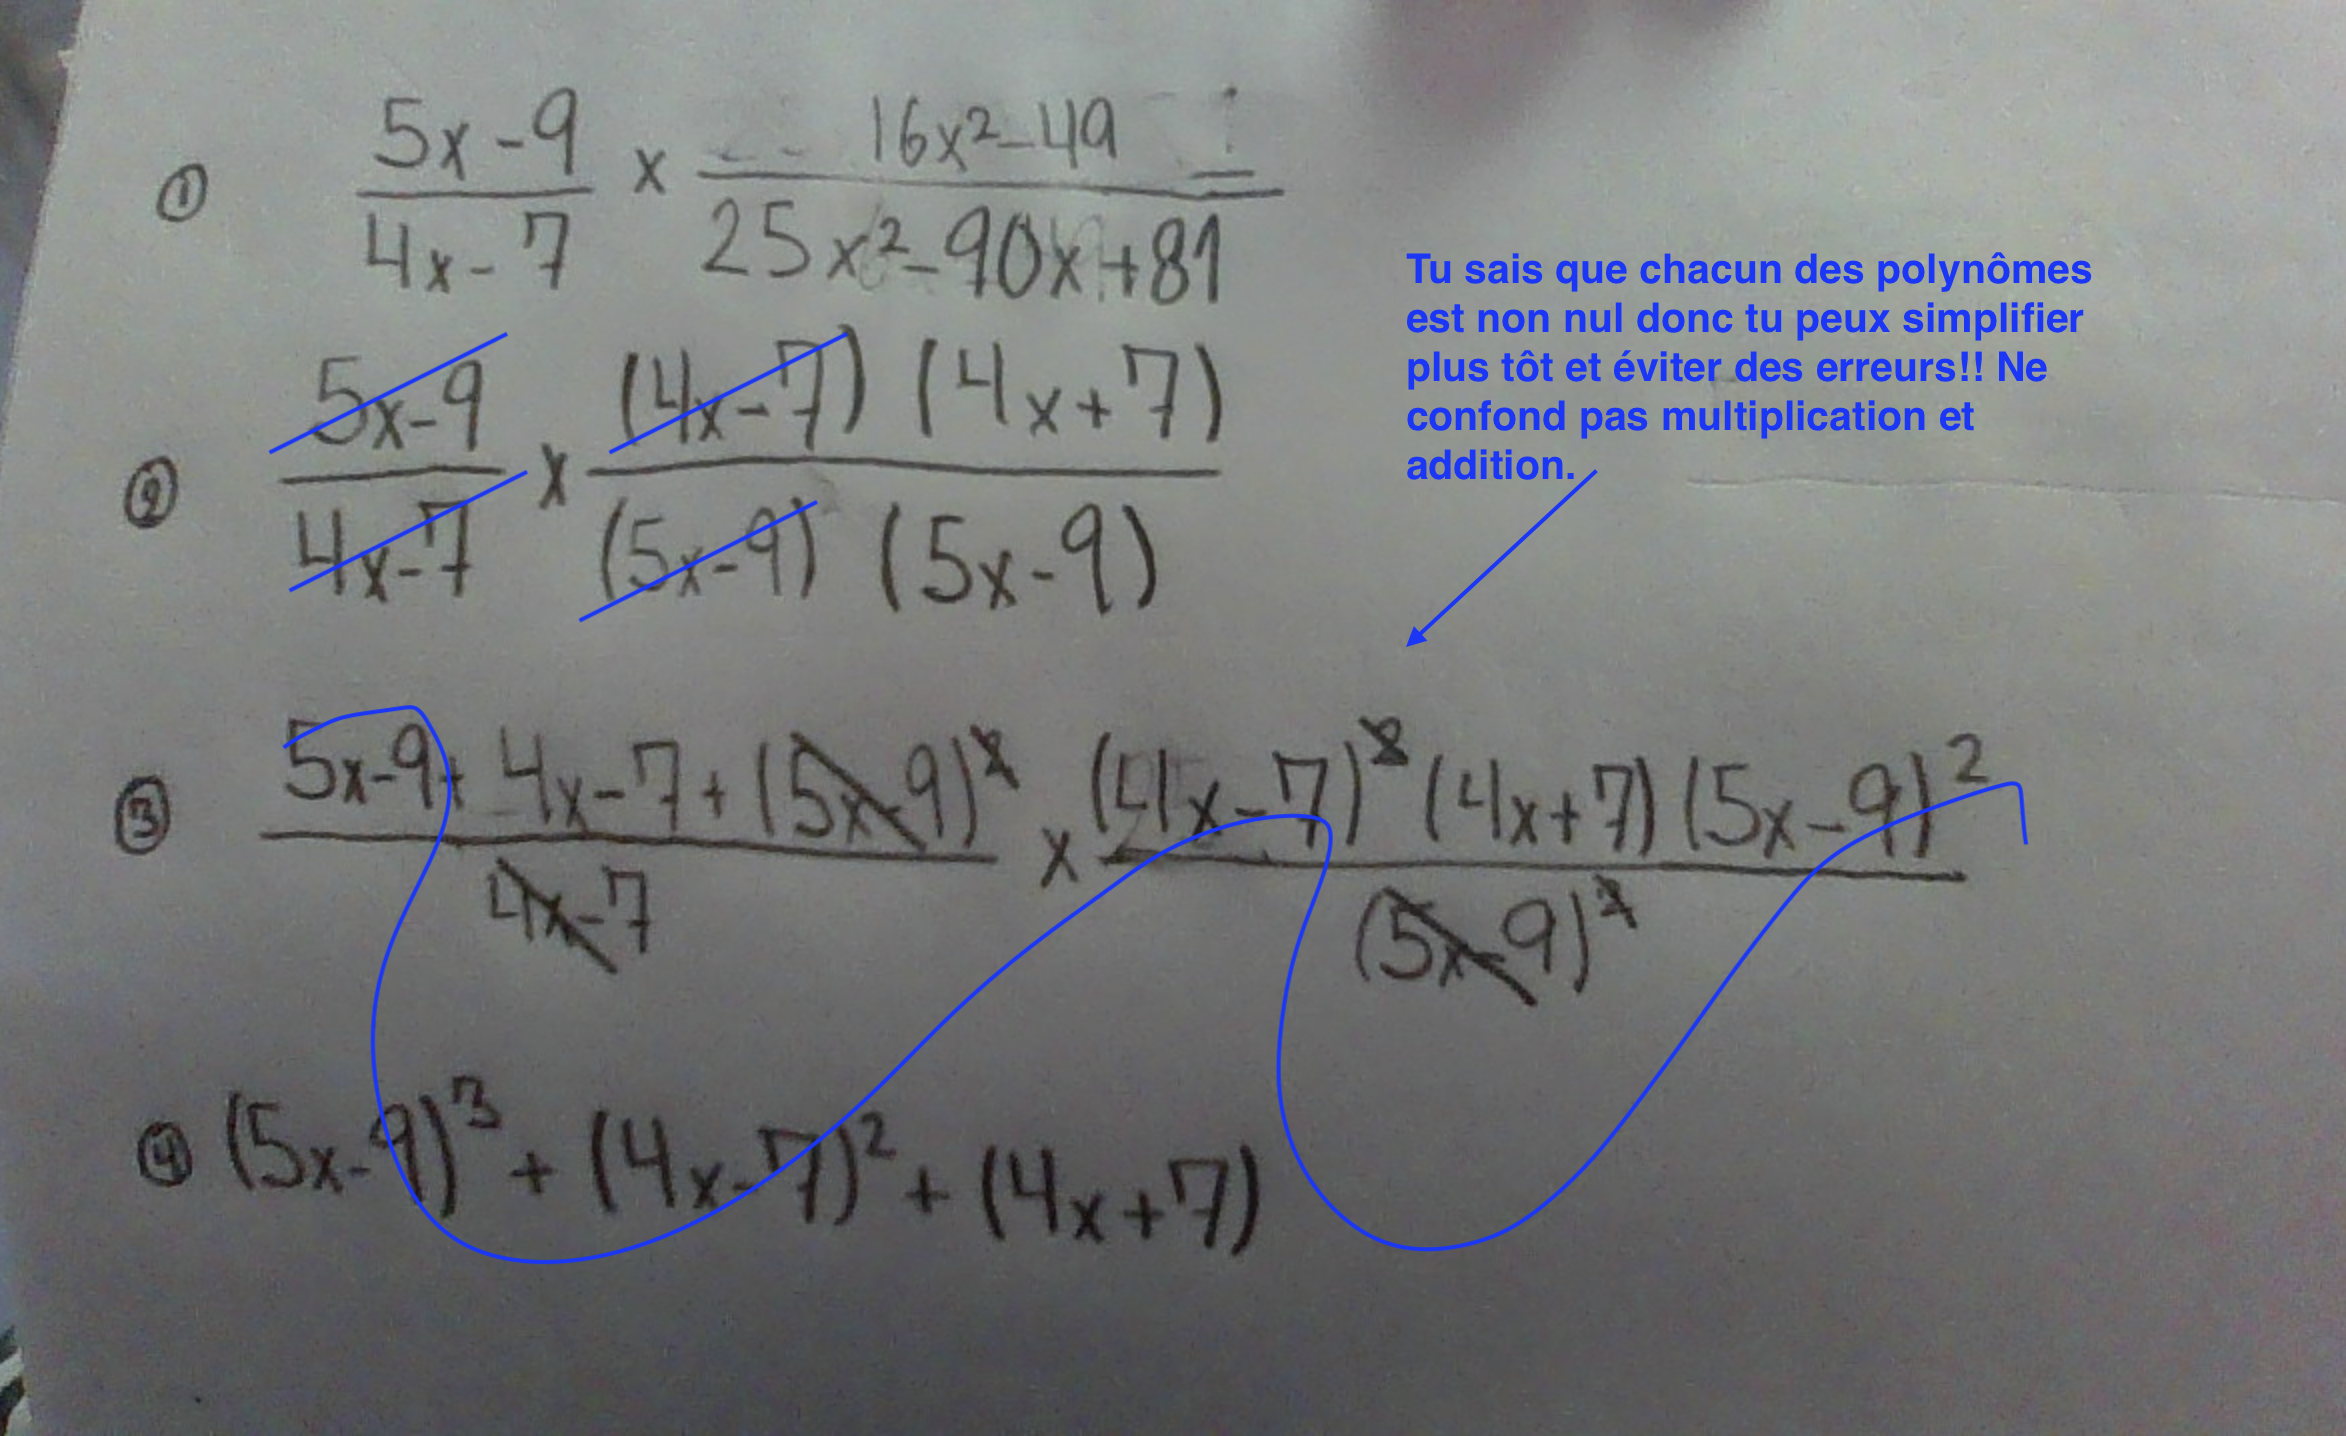 ① 5x-9 × 16x²-49
4x-7 25x²-90x+81
Tu sais que chacun des polynômes
est non nul donc tu peux simplifier
plus tôt et éviter des erreurs!! Ne
confond pas multiplication et
addition.
② 5x-9 × (4x-7) (4x+7)
4x-7 (5x-9) (5x-9)
③ 5x-9+ 4x-7+(5x-9)² × (4x-7)² (4x+7) (5x-9)²
4x-7 (5x-9)²
④ (5x-9)³ + (4x-7)² + (4x+7)